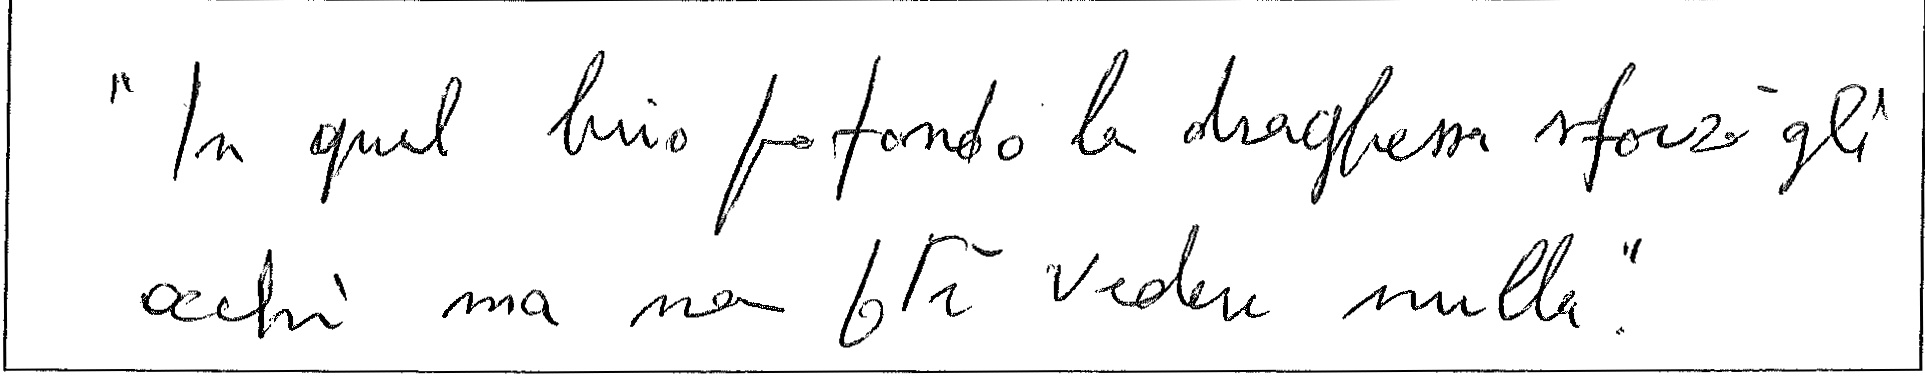 "In quel buio profondo la draghessa sforzò gli
occhi ma non poté vedere nulla".